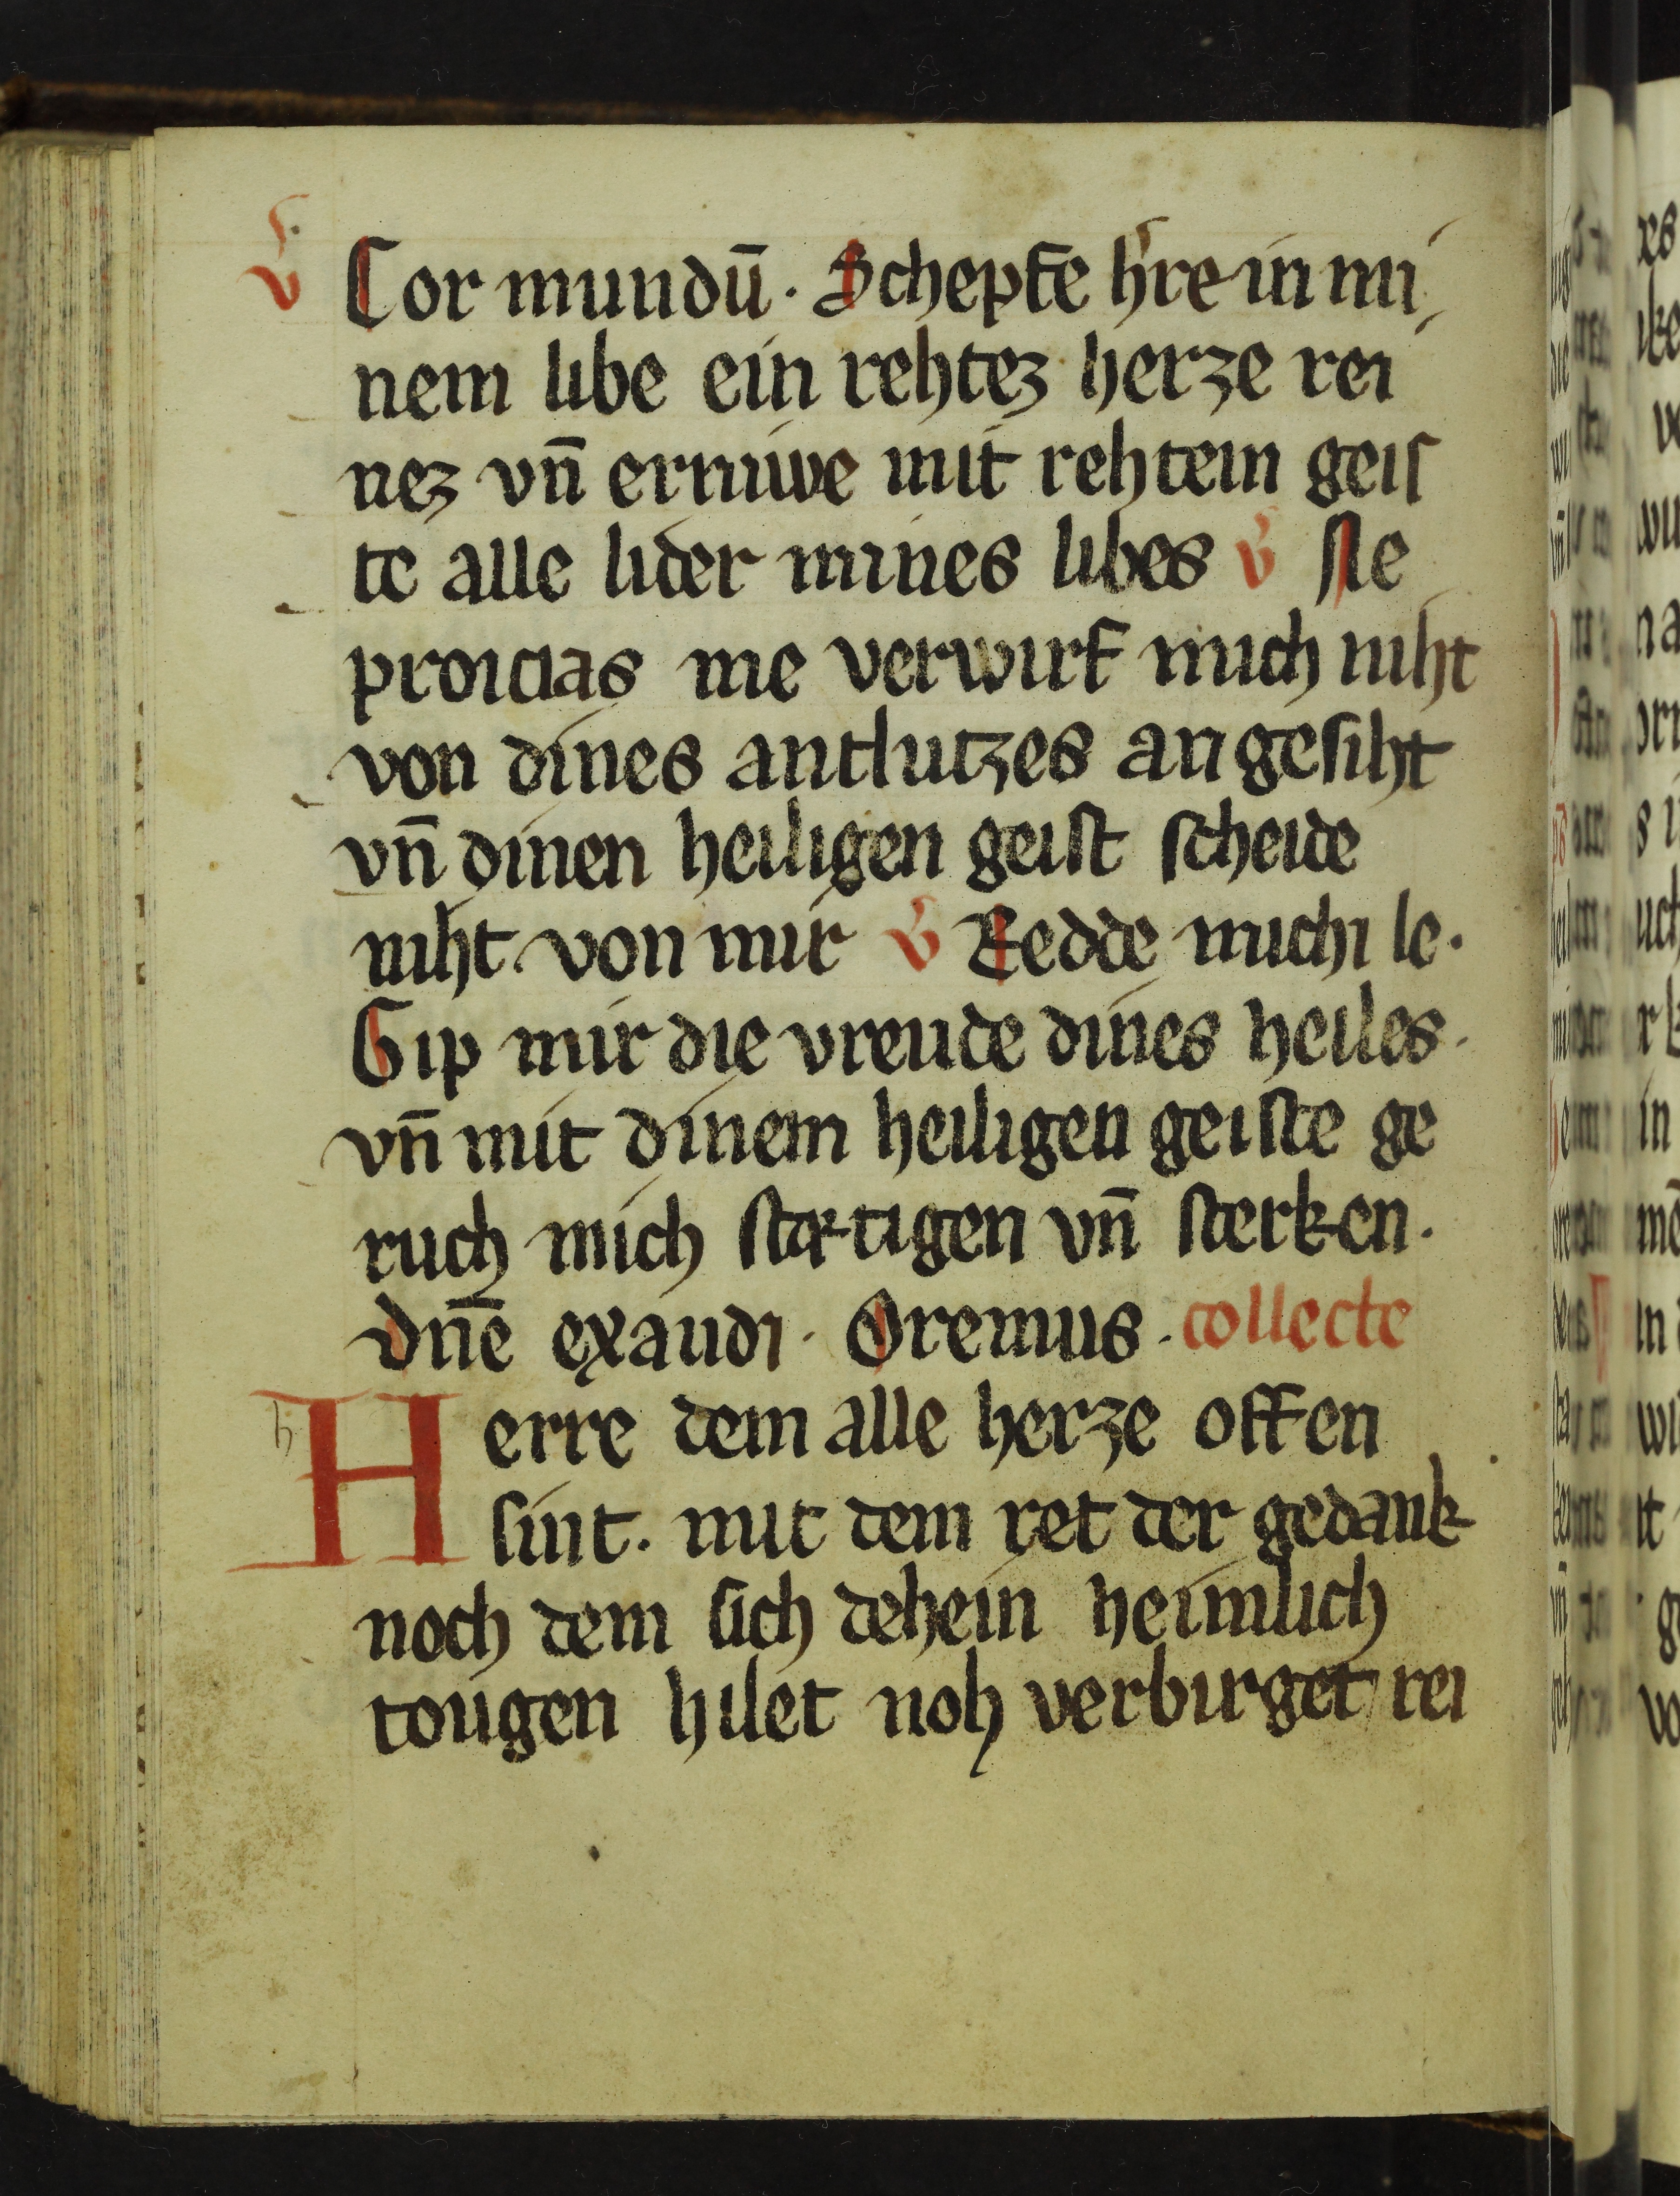 v̕ Cor mundū. Schepfe h̕re in mi
nem libe ein rehtez herze rei
nez vn̄ erniwe mit rehtem geiſ
te alle lider mines libes v̕ Ne
proicias me verwirf mich niht
von dines antlutzes angeſiht
vn̄ dinen heiligen geiſt ſcheide
niht von mir v̕ Redde michi le.
Gip mir die vreude dines heiles.
vn̄ mit dinem heiligen geiſte ge
ruch mich ſtætigen vn̄ ſterken.
dn̄e exaudi. Oremus. collecte
Herre dem alle herze offen
ſint. mit dem ret der gedank
noch dem ſich dehein heimlich
tougen hilet noh verbirget rei